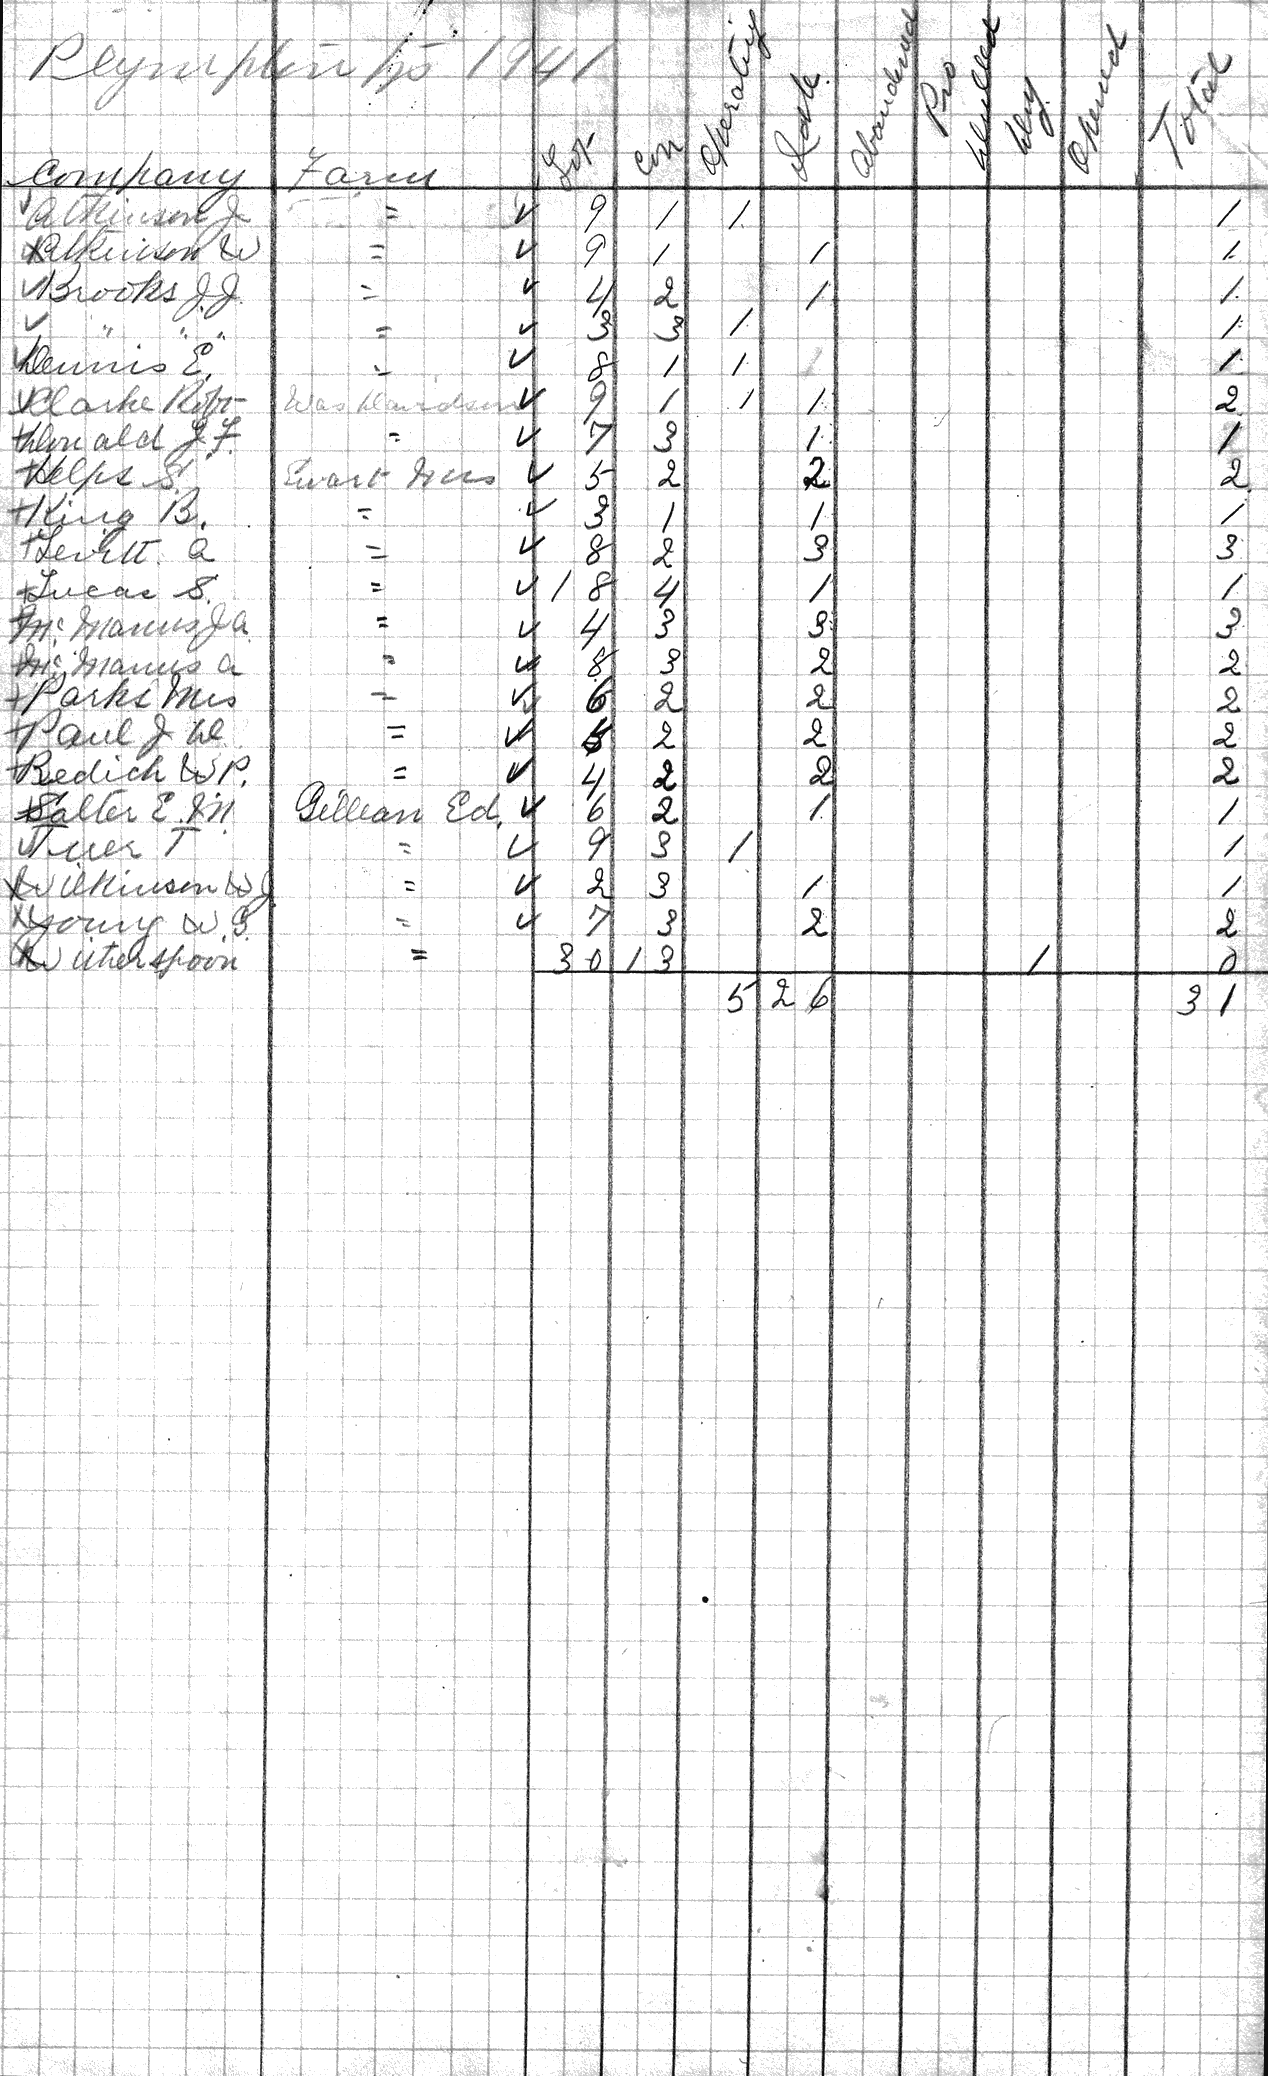 Plympton Tp 1941
Company Farm Lot Con Operating Idle Abandoned Pro Drilled Dry Opened Total
✓ Atkinson J = ✓ 9 1 1 1
x Atkinson W = ✓ 9 1 1 1
✓ Brooks J.J. = ✓ 4 2 1 1
✓ " " " = ✓ 3 3 1 1
✓ Dennis E. = ✓ 8 1 1 1
✓ Clarke Robt Was Davidson ✓ 9 1 1 1 2
+ Donald J.F. = ✓ 7 3 1 1
+ Helps S. Ewart Mrs ✓ 5 2 2 2
+ King B. = ✓ 3 1 1 1
+ Levitt. A = ✓ 8 2 3 3
+ Lucas S. = ✓ 18 4 1 1
+ McManus J a = ✓ 4 3 3 3
+ McManus a = ✓ 8 3 2 2
+ Parks Mrs = ✓ 6 2 2 2
+ Paul J W = ✓ 2 2 2
+ Redick W P. = ✓ 4 2 2 2
+ Salter E.M. Gillean Ed. ✓ 6 2 1 1
✓ T = ✓ 9 3 1 1
x Wilkinson W J = ✓ 2 3 1 1
x Young W.G. = ✓ 7 3 2 2
x Witherspoon = 30 13 1 0
5 26 31